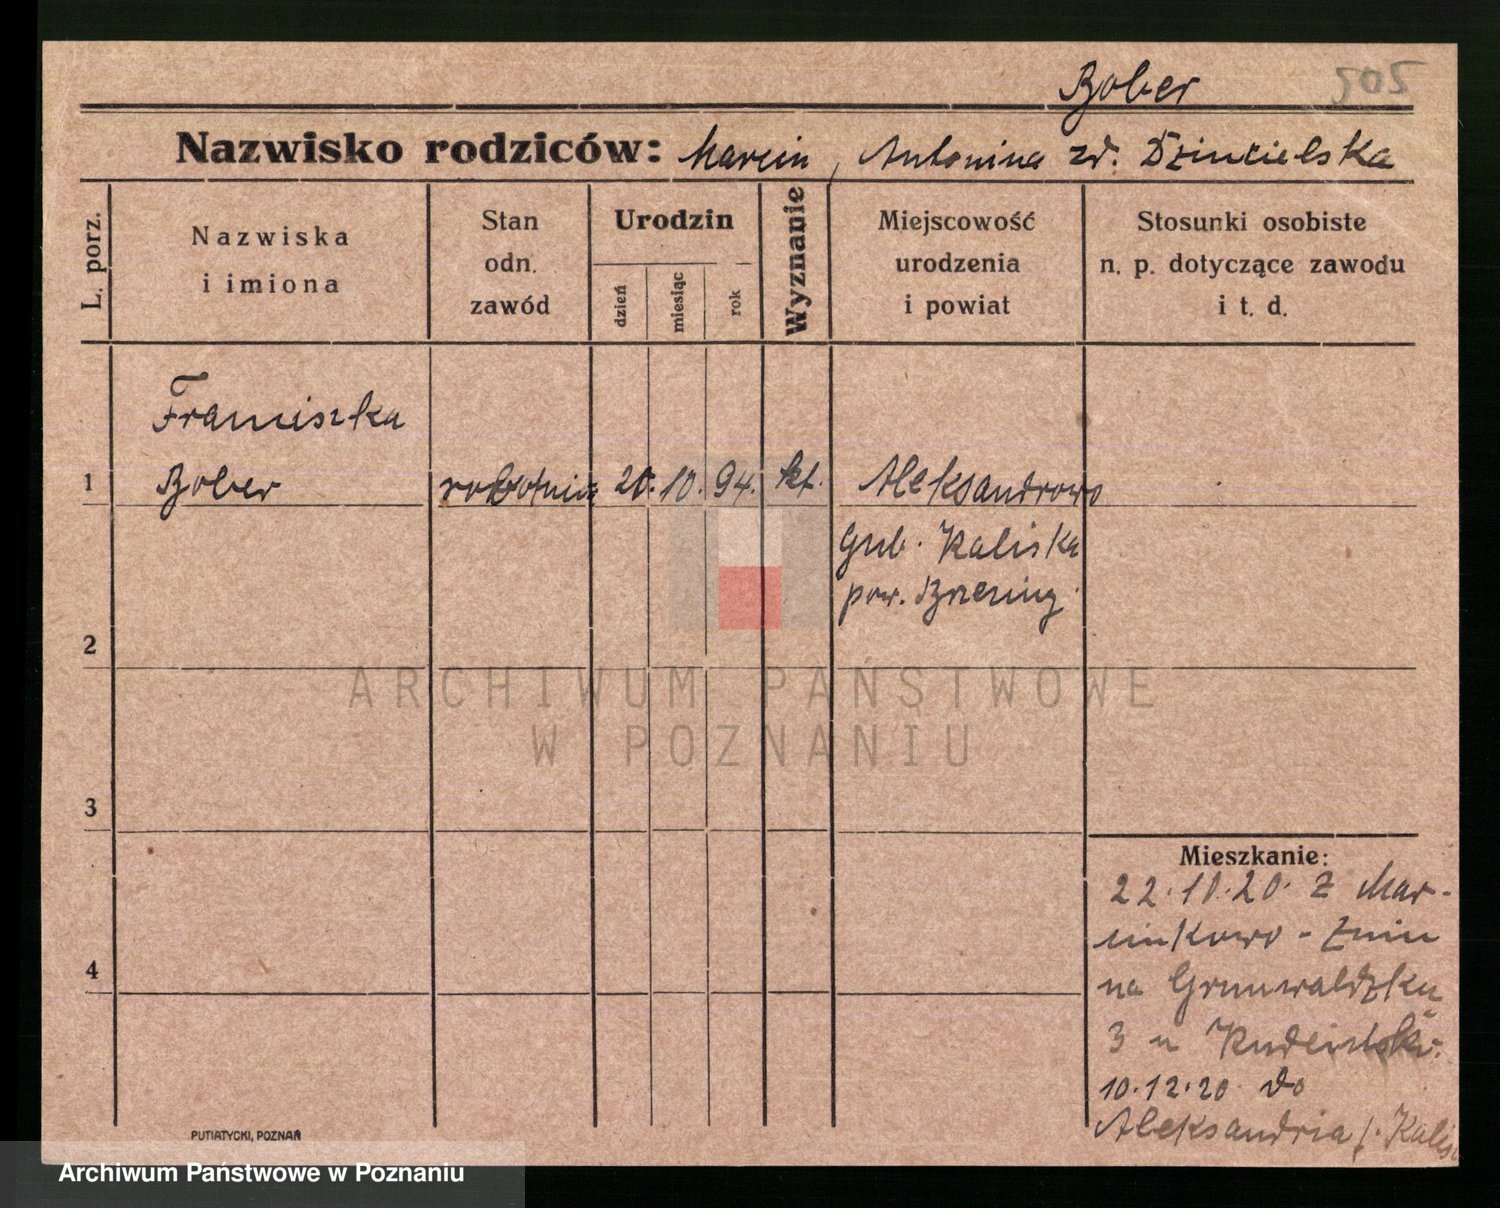 Bober 505
Nazwisko rodziców: Marcin, Antonina zd. Dzincielska
L. porz.
Nazwiska
i imiona
Stan
odn.
zawód
Urodzin
dzień
miesiąc
rok
Wyznanie
Miejscowość
urodzenia
i powiat
Stosunki osobiste
n. p. dotyczące zawodu
i t. d.
Franciszka
1 Bober robotnic 20. 10. 94. kt. Aleksandrowo
gub. Kaliska
pow.
2
ARCHIWUM PAŃSTWOWE
W POZNANIU
3
Mieszkanie:
22.10.20. z Mar-
cinkowo - Żnin
4
na Grunwaldzka
3 u
10.12.20 do
Aleksandria /. Kalis
PUTIATYCKI, POZNAŃ
Archiwum Państwowe w Poznaniu